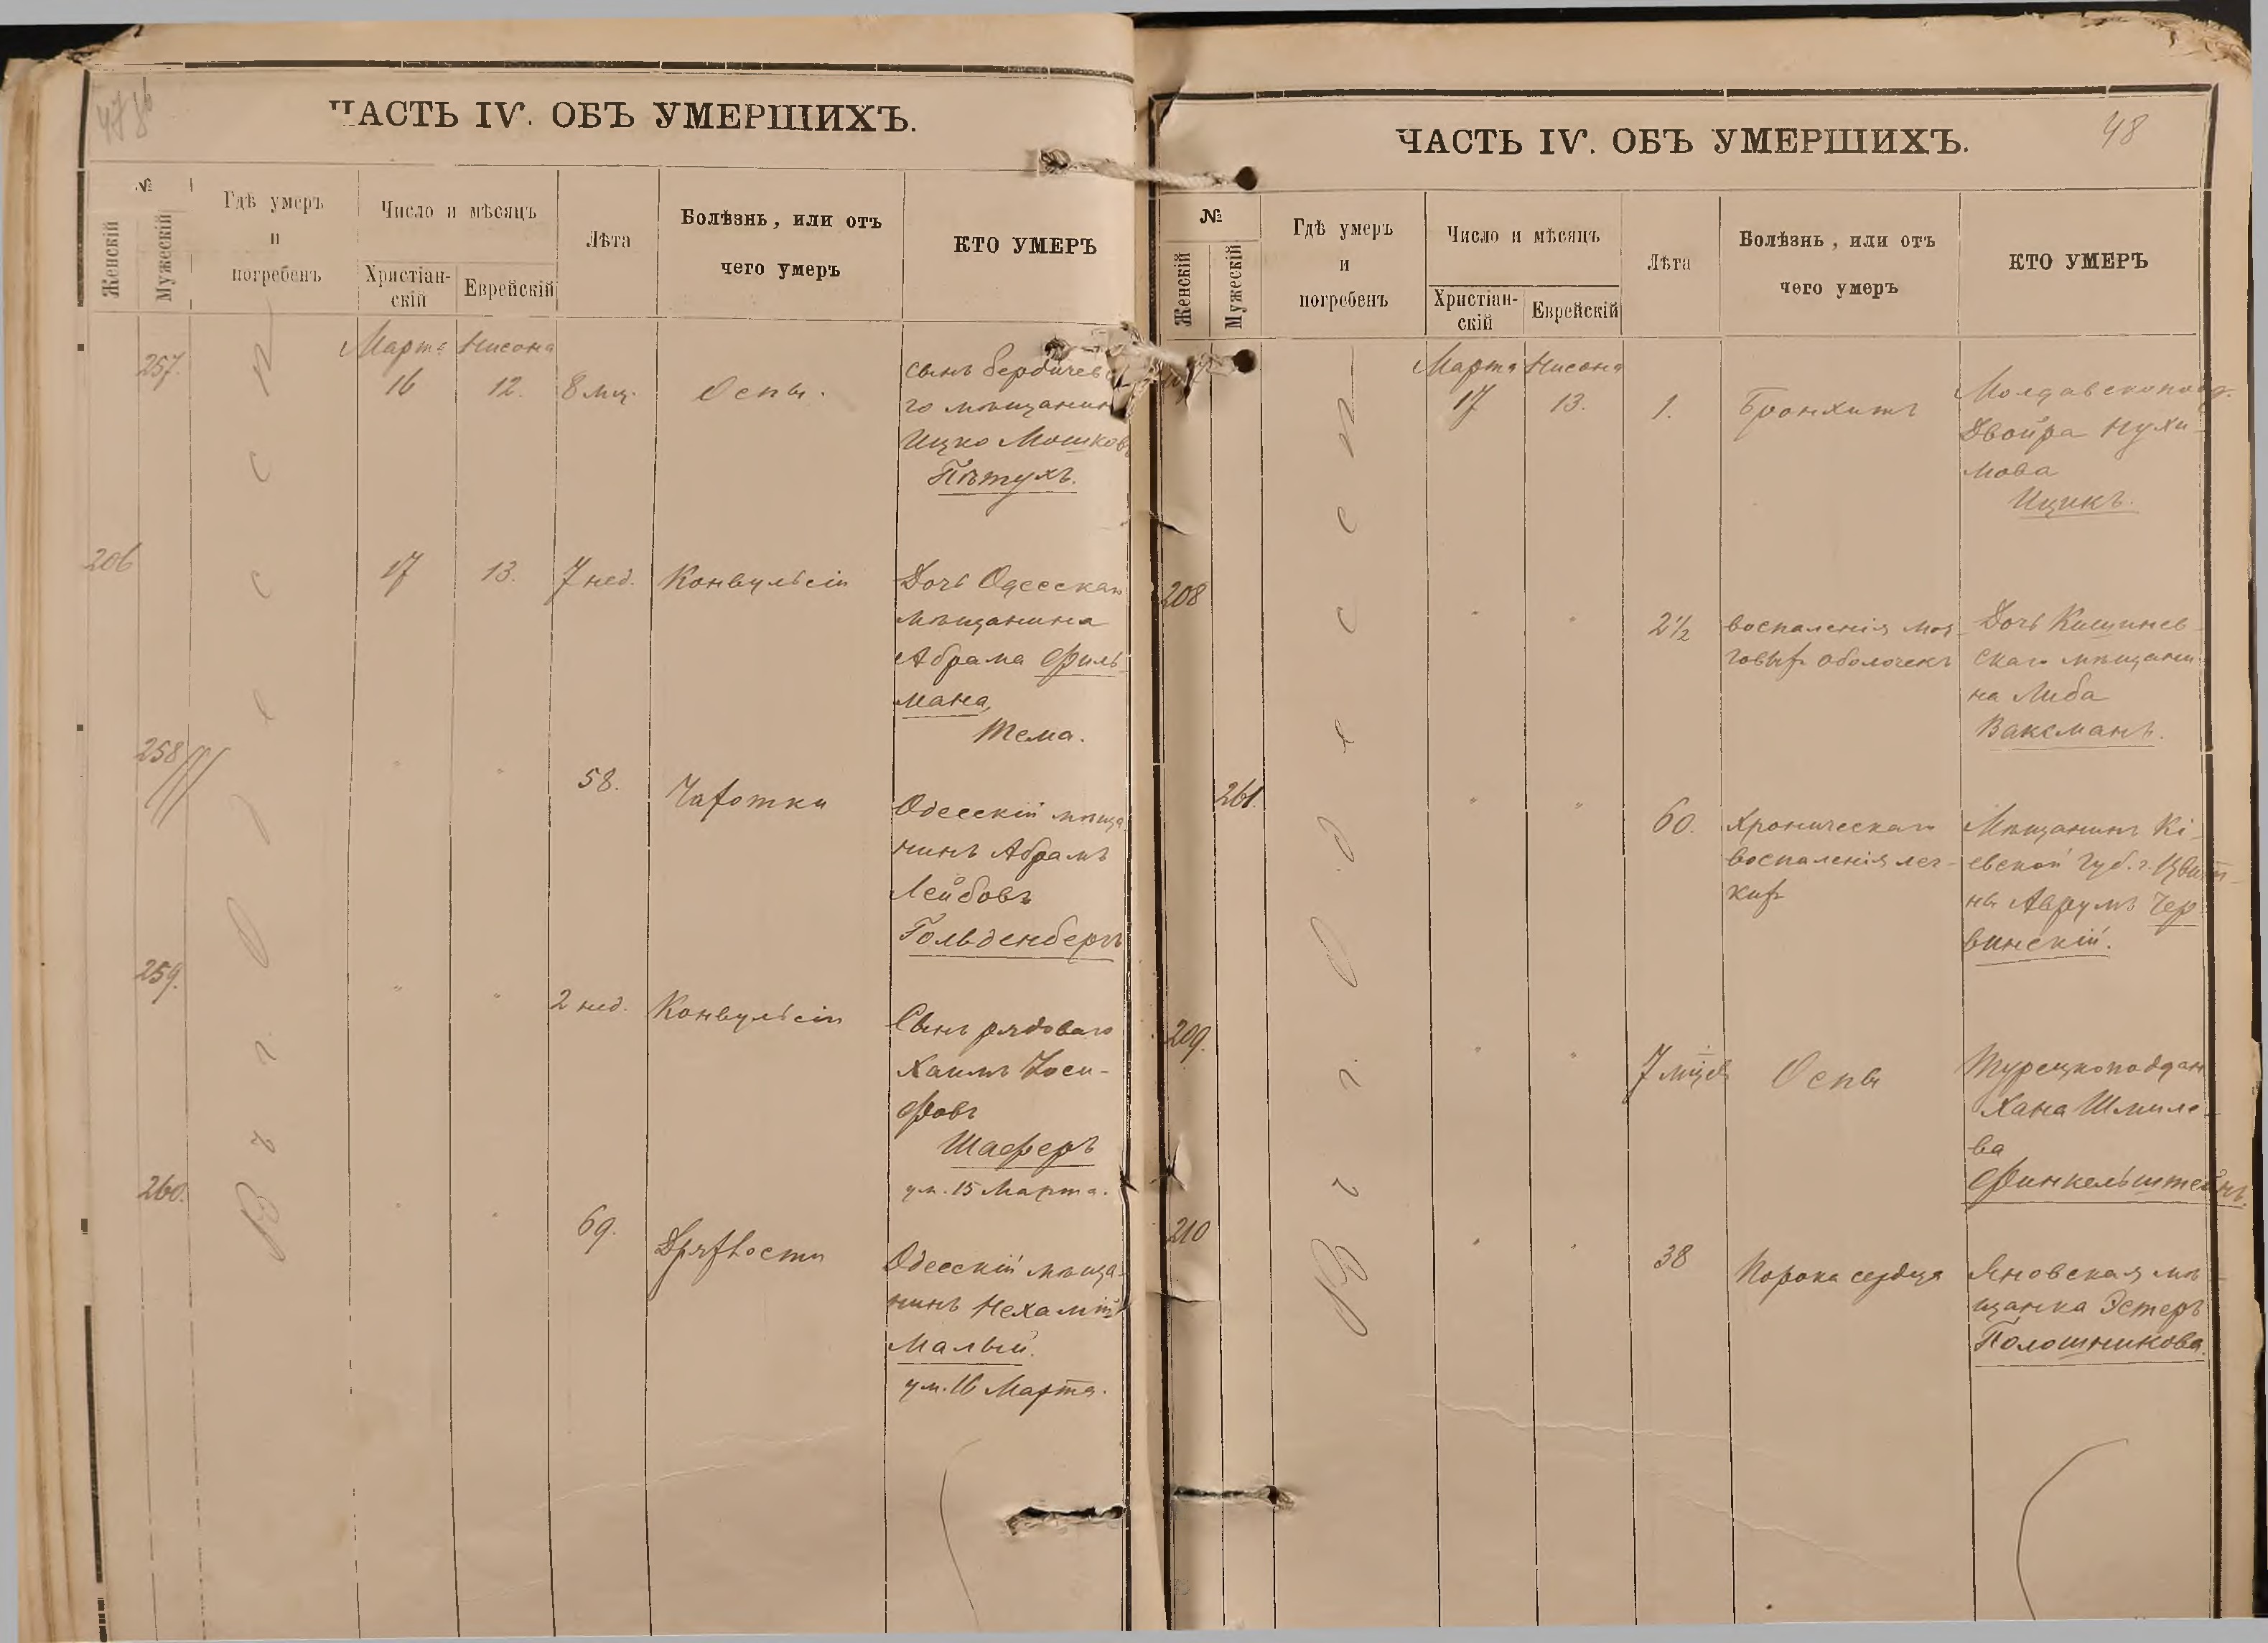 ЧАСТЬ IV. ОБЪ УМЕРШИХЪ.
№
Женскій
Мужескій
Гдѣ умеръ
и
погребенъ
Число и мѣсяцъ
Христіан-
скій
Еврейскій
Лѣта
Болѣзнь, или отъ
чего умеръ
КТО УМЕРЪ
Въ г. Одессѣ
257.
Марта Нисона
16 12. 8 мц. Оспы.
сынъ Бердичев
го мѣщанин
Ицко Мошков
Пѣтухъ.
206
17 13. 7 нед. Конвульсіи
Дочь Одесскаго
мѣщанина
Абрама Филь-
мана,
Тема.
258
" " 58. Чахотки
Одесскій мѣща
нинъ Абрамъ
Лейбовъ
Гольденбергъ
259.
" " 2 нед. Конвульсіи
Сынъ рядоваго
Хаимъ Іоси-
фовъ
Шаферъ
ум. 15 Марта.
260.
" " 69. Дряхлости
Одесскій мѣща-
нинъ Нехамія
Малый.
ум. 16 Марта.
ЧАСТЬ IV. ОБЪ УМЕРШИХЪ.
48
№
Женскій
Мужескій
Гдѣ умеръ
и
погребенъ
Число и мѣсяцъ
Христіан-
скій
Еврейскій
Лѣта
Болѣзнь, или отъ
чего умеръ
КТО УМЕРЪ
Въ г. Одессѣ
Марта Нисона
17 13. 1. Бронхитъ
Молдавскопод.
Двойра Нухи-
мова
Ицикъ.
208
" " 2½ воспаленія моз-
говыхъ оболочекъ
Дочь Кишинев-
скаго мѣщани-
на Либа
Ваксманъ.
261.
" " 60. Хроническаго
воспаленія лег-
кихъ
Мѣщанинъ Кі-
евской губ. г.
ны Аврумъ Чер-
винскій.
209.
" " 7 мцевъ Оспы
Турецкоподдан
Хана Шмиле-
ва
Финкельштейнъ.
210
" " 38 Порока сердца
Яновская мѣ-
щанка Эстеръ
Полошникова.